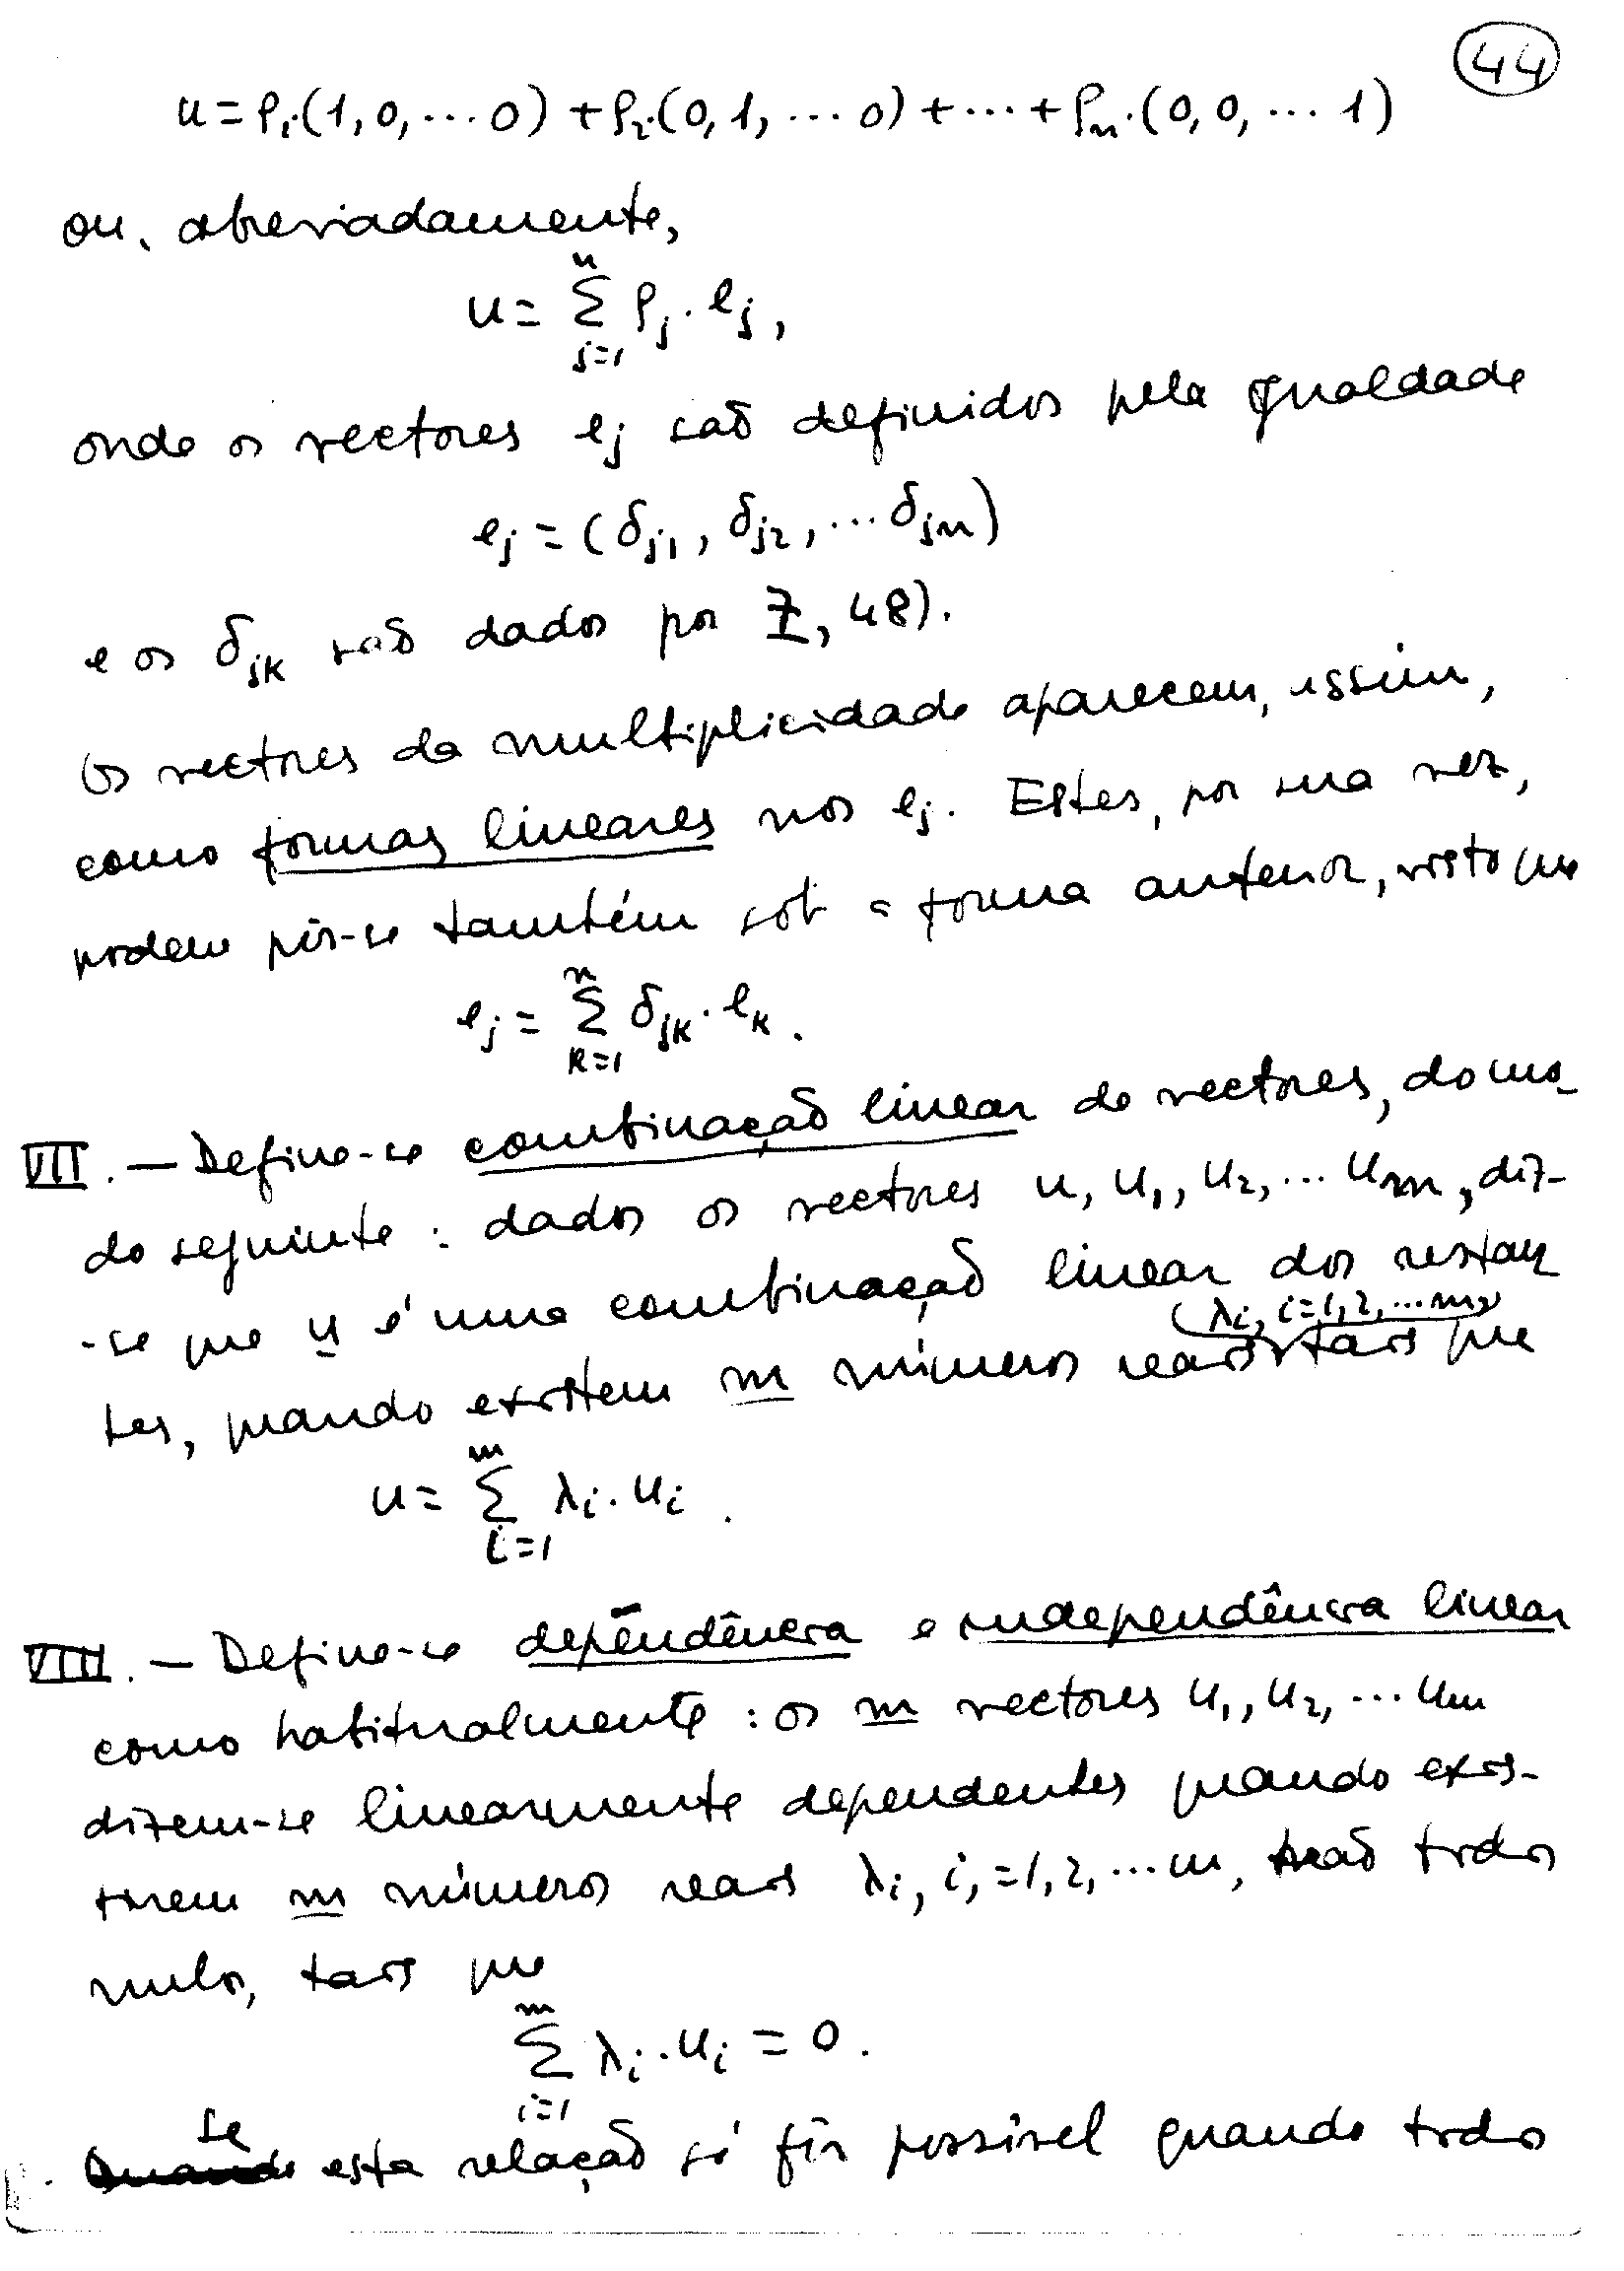 44
u = ρ₁.(1, 0, ... 0) + ρ₂.(0, 1, ... 0) + ... + ρₙ.(0, 0, ... 1)
ou, abreviadamente,
u = Σⁿⱼ₌₁ ρⱼ . eⱼ ,
onde os vectores eⱼ são definidos pela igualdade
eⱼ = (δⱼ₁, δⱼ₂, ... δⱼₙ)
e os δⱼₖ são dados por I, 48).
Os vectores da multiplicidade aparecem, assim,
como formas lineares nos eⱼ. Estes, por sua vez,
podem pôr-se também sob a forma anterior, visto que
eⱼ = Σⁿₖ₌₁ δⱼₖ . eₖ .
VII. — Define-se combinação linear de vectores, do mo-
do seguinte : dados os vectores u, u₁, u₂, ... uₘ, diz-
-se que u é uma combinação linear dos restan
λᵢ, i=1, 2, ... m,
tes, quando existem m números reais tais que
u = Σᵐᵢ₌₁ λᵢ . uᵢ .
VIII. — Define-se dependência e independência linear
como habitualmente : os m vectores u₁, u₂, ... uₘ
dizem-se linearmente dependentes quando exis-
tirem m números reais λᵢ, i, =1, 2, ... m, não todos
nulos, tais que
Σᵐᵢ₌₁ λᵢ . uᵢ = 0 .
se
Quando esta relação só fôr possível quando todos